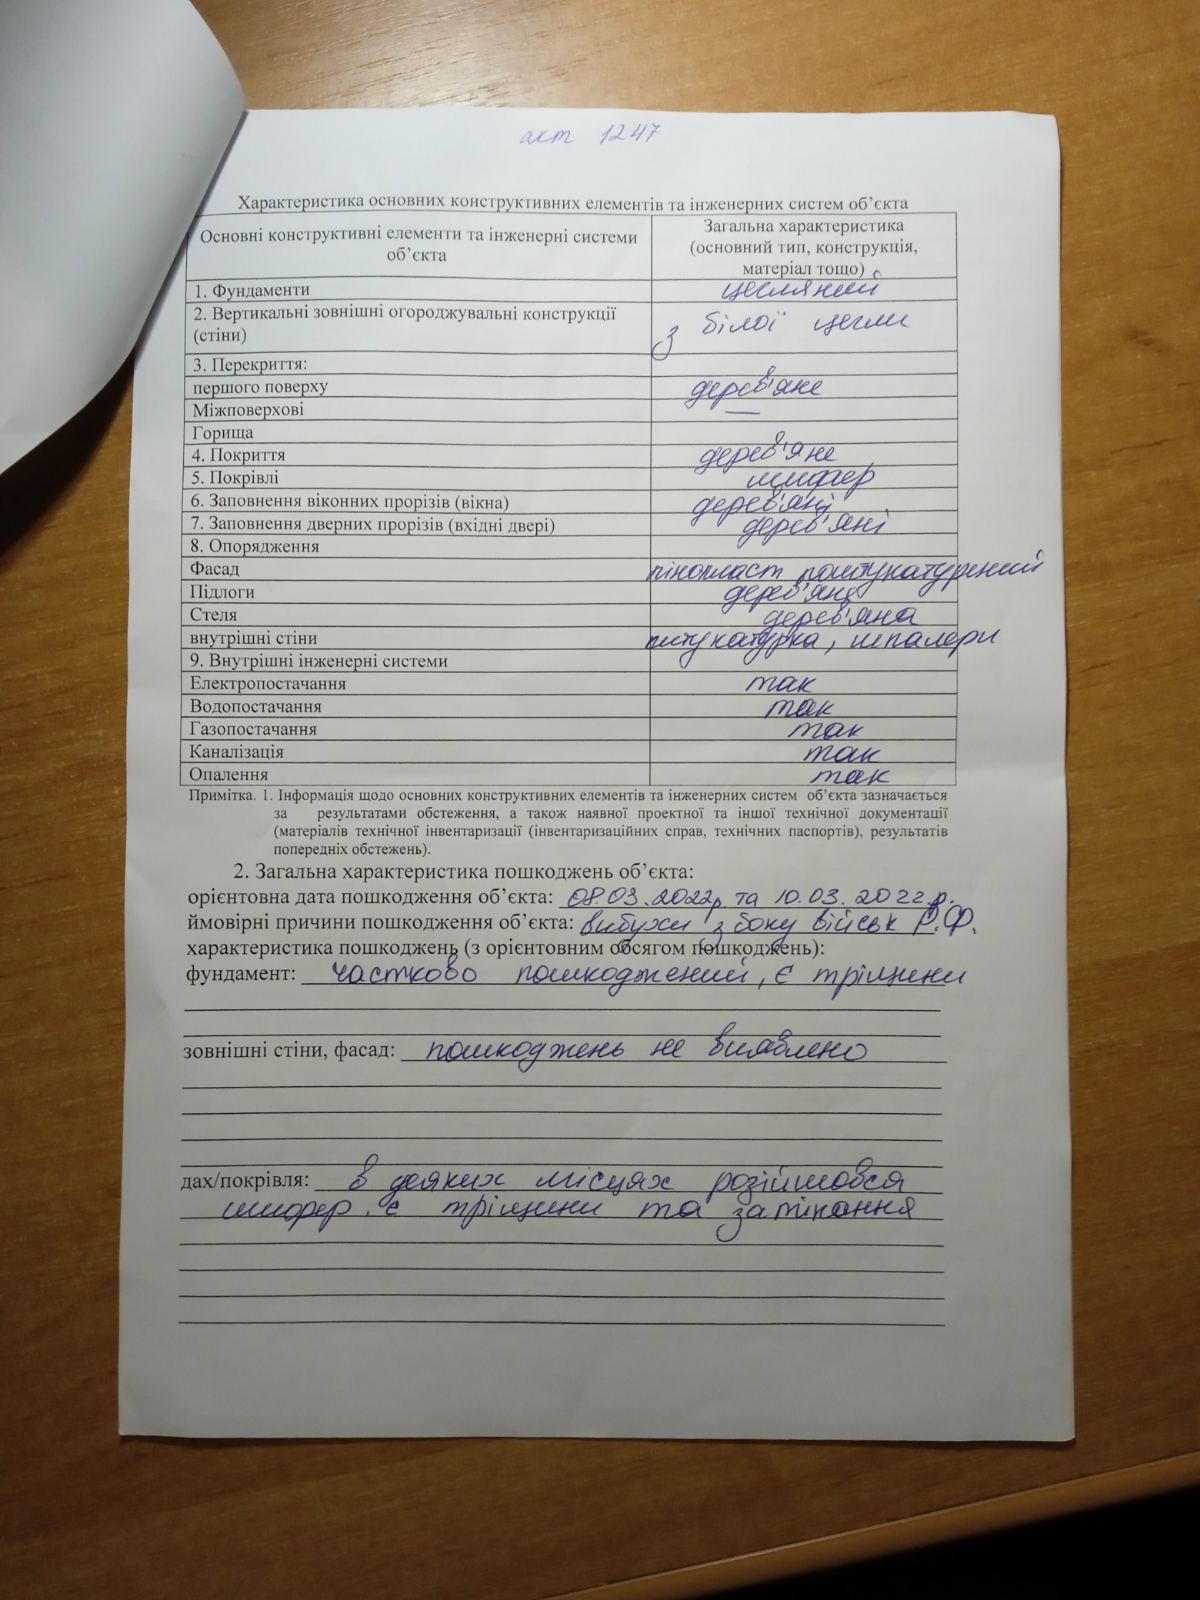 акт 1247
Характеристика основних конструктивних елементів та інженерних систем об’єкта
Основні конструктивні елементи та інженерні системи об’єкта
Загальна характеристика
(основний тип, конструкція,
матеріал тощо)
1. Фундаменти цегляний
2. Вертикальні зовнішні огороджувальні конструкції
(стіни) з білої цегли
3. Перекриття:
першого поверху дерев'яне
Міжповерхові —
Горища
4. Покриття дерев'яне
5. Покрівлі шифер
6. Заповнення віконних прорізів (вікна) дерев'яні
7. Заповнення дверних прорізів (вхідні двері) дерев'яні
8. Опорядження
Фасад пінопласт поштукатурений
Підлоги дерев'яне
Стеля дерев'яна
внутрішні стіни штукатурка, шпалери
9. Внутрішні інженерні системи
Електропостачання так
Водопостачання так
Газопостачання так
Каналізація так
Опалення так
Примітка. 1. Інформація щодо основних конструктивних елементів та інженерних систем об’єкта зазначається
за результатами обстеження, а також наявної проектної та іншої технічної документації
(матеріалів технічної інвентаризації (інвентаризаційних справ, технічних паспортів), результатів
попередніх обстежень).
2. Загальна характеристика пошкоджень об’єкта:
орієнтовна дата пошкодження об’єкта: 08.03.2022р. та 10.03.2022р.
ймовірні причини пошкодження об’єкта: вибухи з боку військ Р.Ф.
характеристика пошкоджень (з орієнтовним обсягом пошкоджень):
фундамент: частково пошкоджений, є тріщини
зовнішні стіни, фасад: пошкоджень не виявлено
дах/покрівля: в деяких місцях розійшовся
шифер. є тріщини та затікання